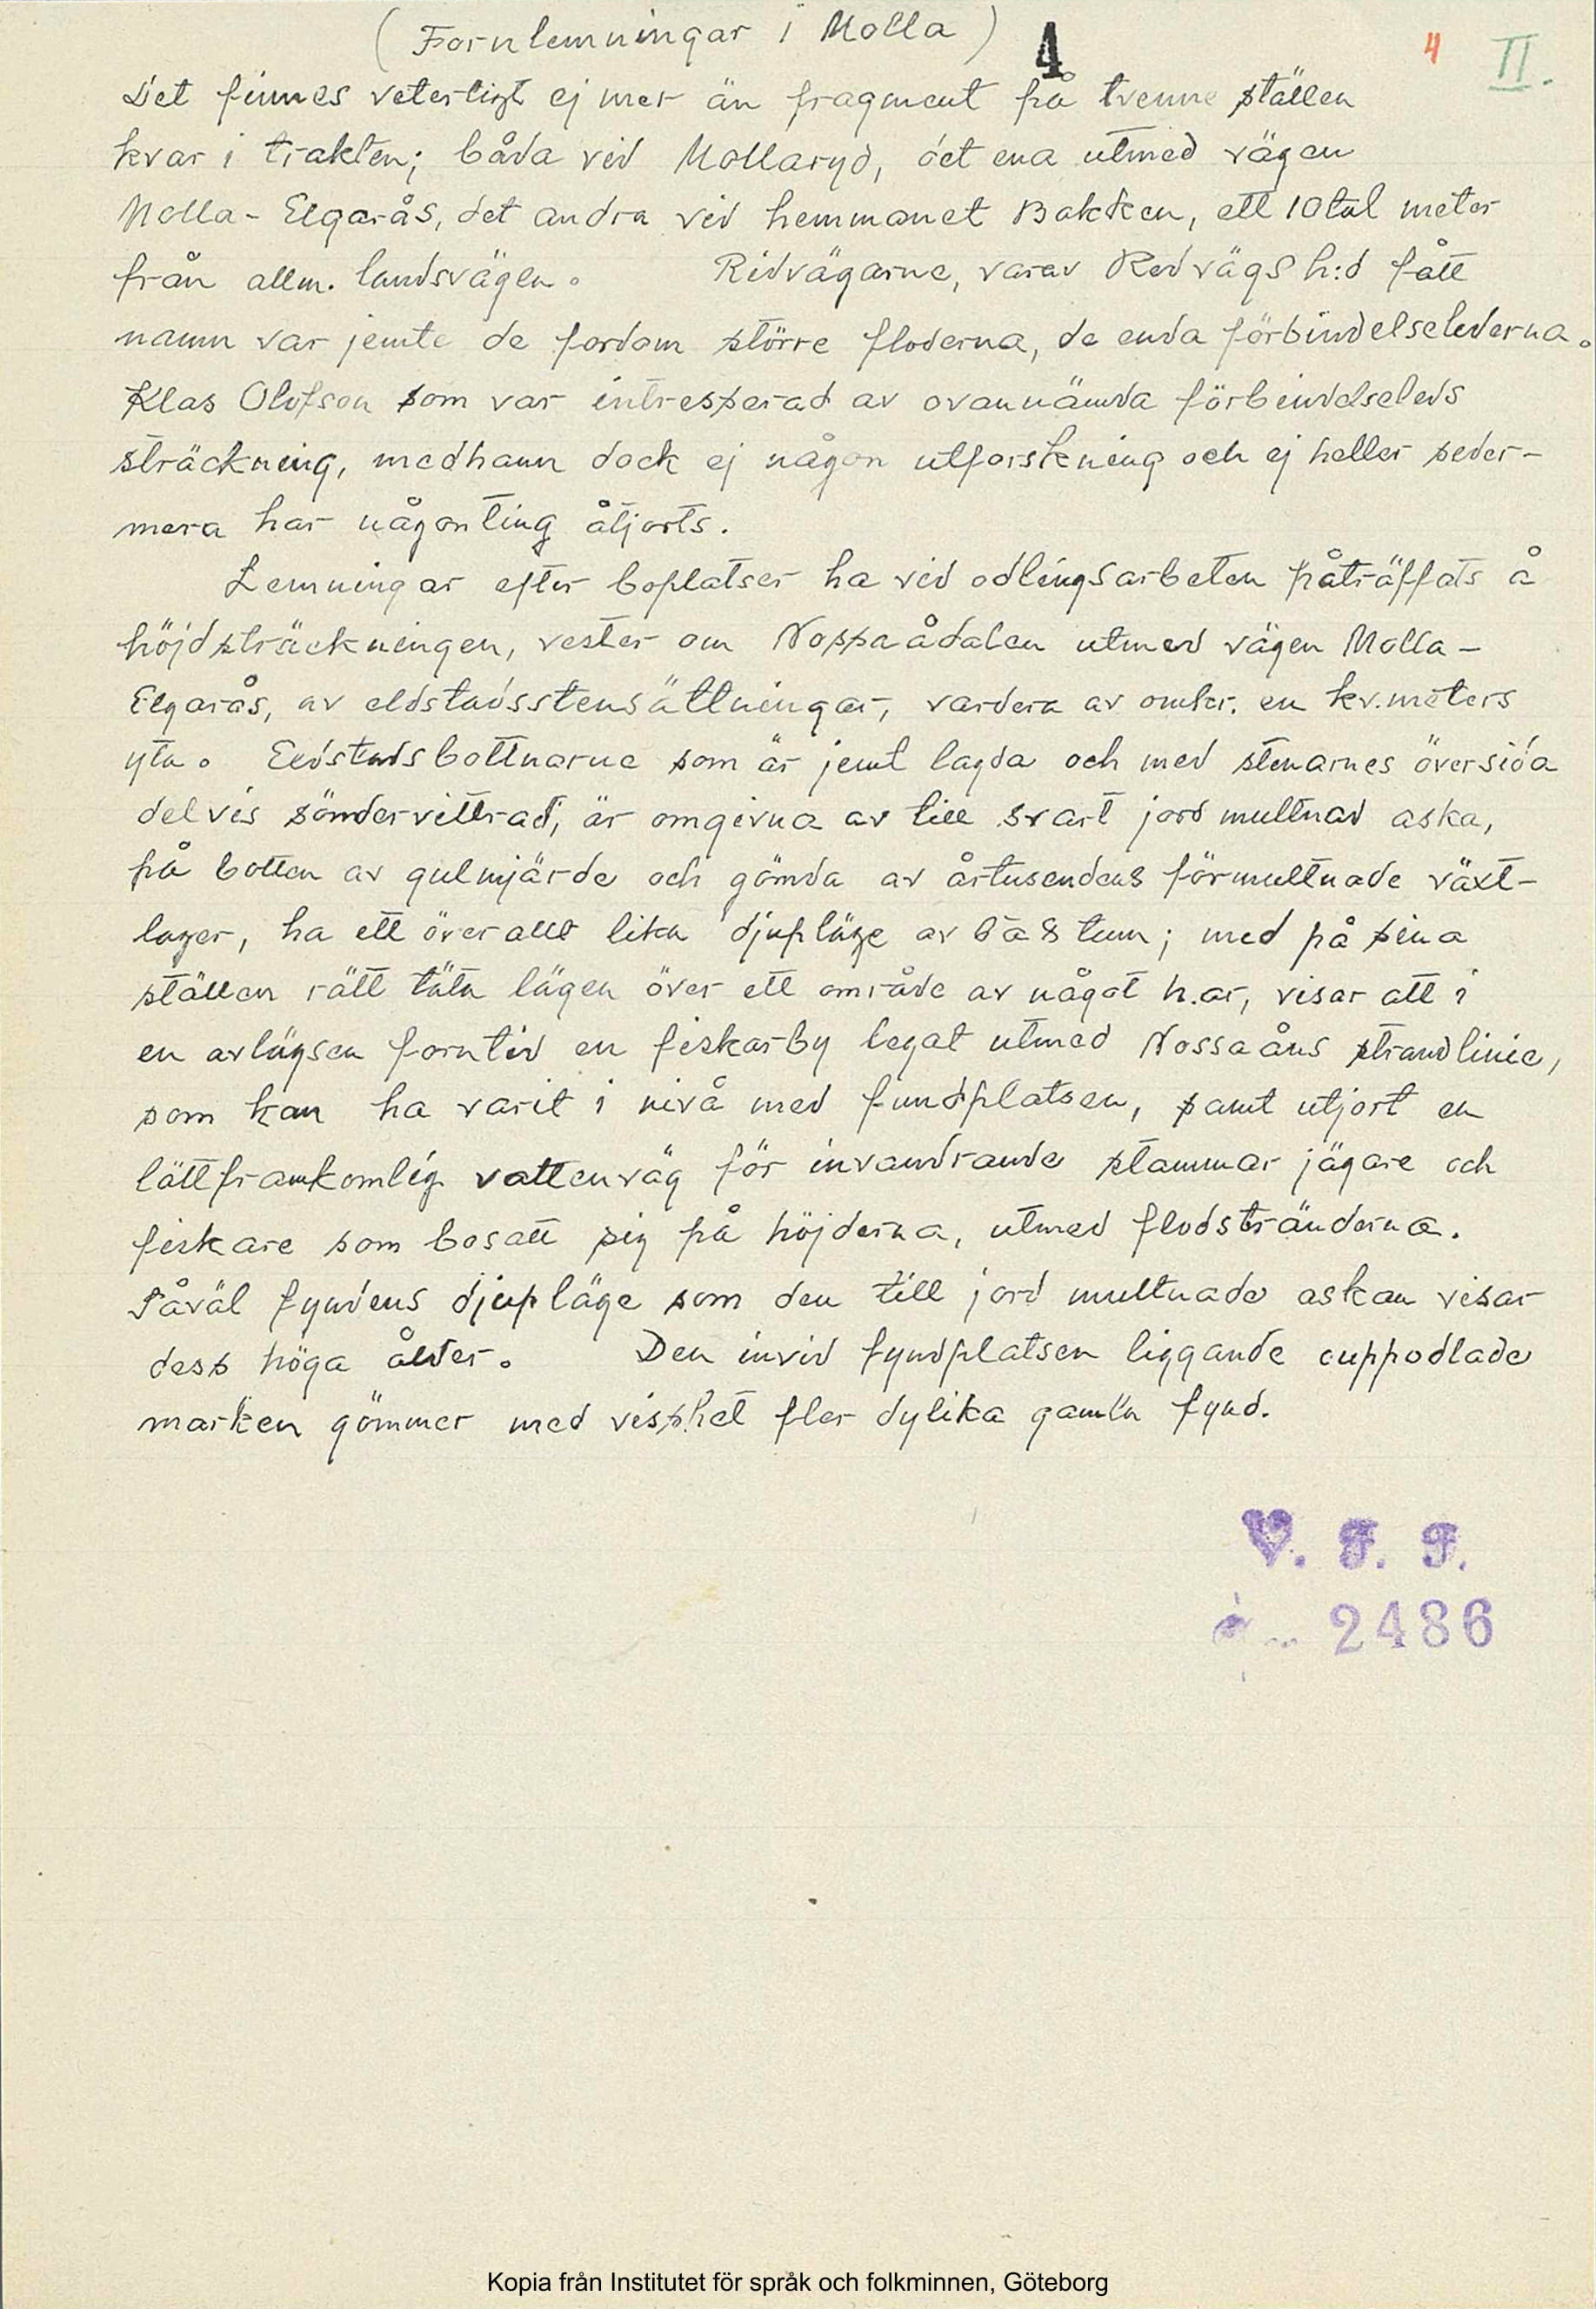 (Fornlemningar i Molla)
4
4 II.
Det finnes veterligt ej mer än fragment på tvenne ställen
kvar i trakten; båda vid Mollaryd, det ena utmed vägen
Molla - Elgarås, det andra vid hemmanet Bakken, ett 10tal meter
från allm. landsvägen. Ridvägarne, varav Redvägs h:d fått
namn var jemte de fordom större floderna, de enda förbindelselederna.
Klas Olofson som var intresserad av ovannämda förbindelseleds
sträckning, medhann dock ej någon utforskning och ej heller seder-
mera har någonting åtjorts.
Lemningar efter boplatser ha vid odlingsarbeten påträffats å
höjdsträckningen, vester om Nossaådalen utmed vägen Molla -
Elgarås, av eldstadsstensättningar, vardera av omkr. en kv.meters
yta. Eldstadsbottnarne som är jemt lagda och med stenarnes översida
delvis söndervittrad, är omgivna av till svart jord multnad aska,
på botten av gulmjärde och gömda av årtusendens förmultnade växt-
lager, ha ett överallt lika djupläge av 6 à 8 tum; med på sina
ställen rätt täta lägen över ett område av något h.ar, visar att i
en avlägsen forntid en fiskarby legat utmed Nossaåns strandlinie,
som kan ha varit i nivå med fundplatsen, samt utjort en
lättframkomlig vattenväg för invandrande stammar jägare och
fiskare som bosatt sig på höjderna, utmed flodstränderna.
Såväl fyndens djupläge som den till jord multnade askan visar
dess höga ålder. Den invid fyndplatsen liggande ouppodlade
marken gömmer med visshet fler dylika gamla fynd.
V. F. F.
2486
Kopia från Institutet för språk och folkminnen, Göteborg